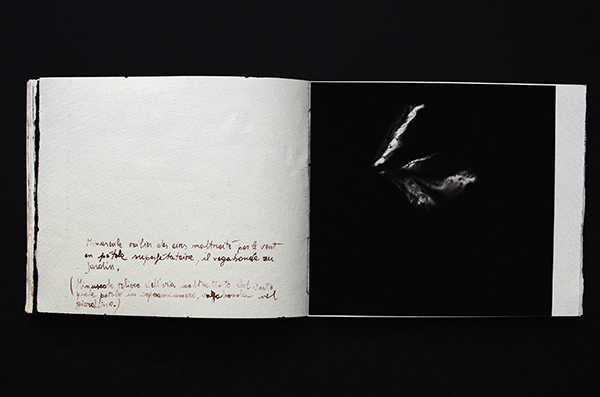 Minuscule voilier des airs maltraité par le vent
en pétale superfétatoire, il vagabonde au
jardin.
(Minuscolo veliero dell'aria maltrattato dal vento
quale petalo in, vagabonda nel
giardino.)